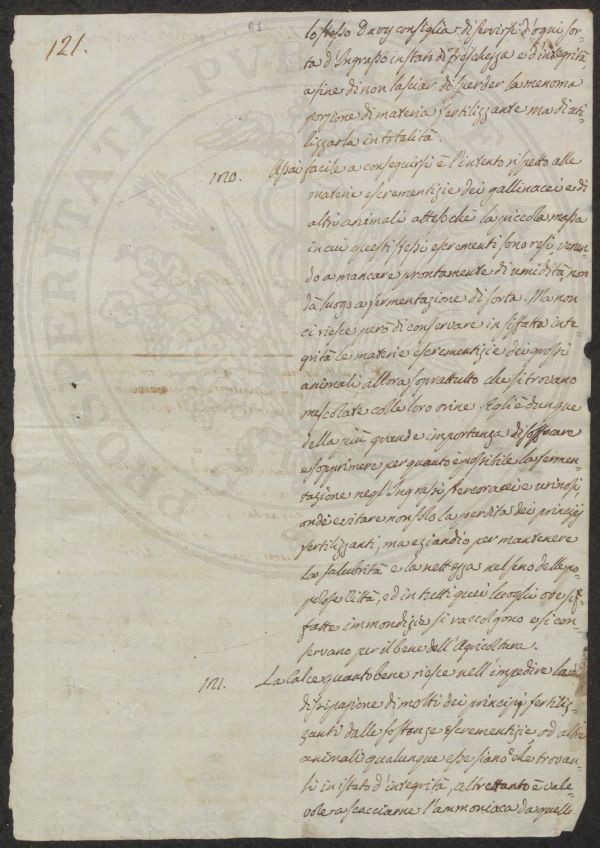 121.
61
lo stesso Davy consiglia di servirsi d'ogni sor-
ta d'Ingrasso in stato di freschezza e d'integrità
a fine di non lasciar disperder la menoma
porzione di materia fertilizzante ma di uti-
lizzarla in totalità.
120. Assai facile a conseguirsi è l'intento rispetto alle
materie escrementizie dei gallinacei e di
altri animali attesochè la piccola massa
in cui questi stessi escrementi sono resi, venen-
do a mancare prontamente di umidità, non
dà luogo a fermentazione di sorta. Ma non
ci riesce però di conservare in siffatta inte-
grità le materie escrementizie dei grossi
animali allora soprattutto che si trovano
mescolate colle loro orine. Egli è dunque
della più grande importanza di soffocare
e sopprimere per quanto è possibile la fermen-
tazione negl'Ingrassi stercoracei e urinosi,
onde evitare non solo la perdita dei principj
fertilizzanti, ma eziandio per mantenere
la salubrità e la nettezza nel seno delle po-
polose Città, ed in tutti quei luoghi ove sif-
fatte immondizie si raccolgono e si con-
servano per il bene dell'Agricoltura.
121. La Calce quanto bene riesce nell'impedire la
dissipazione di molti dei principj fertiliz-
zanti dalle sostanze escrementizie od altri
animali qualunque esse siano che trovan-
si in istato d'integrità, altrettanto è vale-
vole a scacciarne l'ammoniaca da quelle
PROSPERITATI PVB